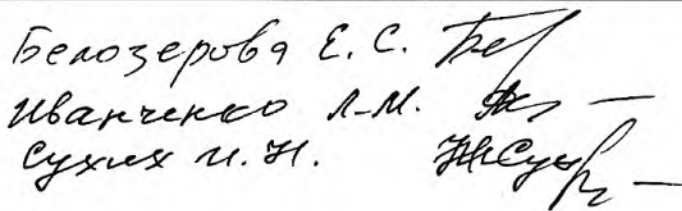 Белозерова Е. С. Бе
Иванченко Л-М.
Сухих И. Н.